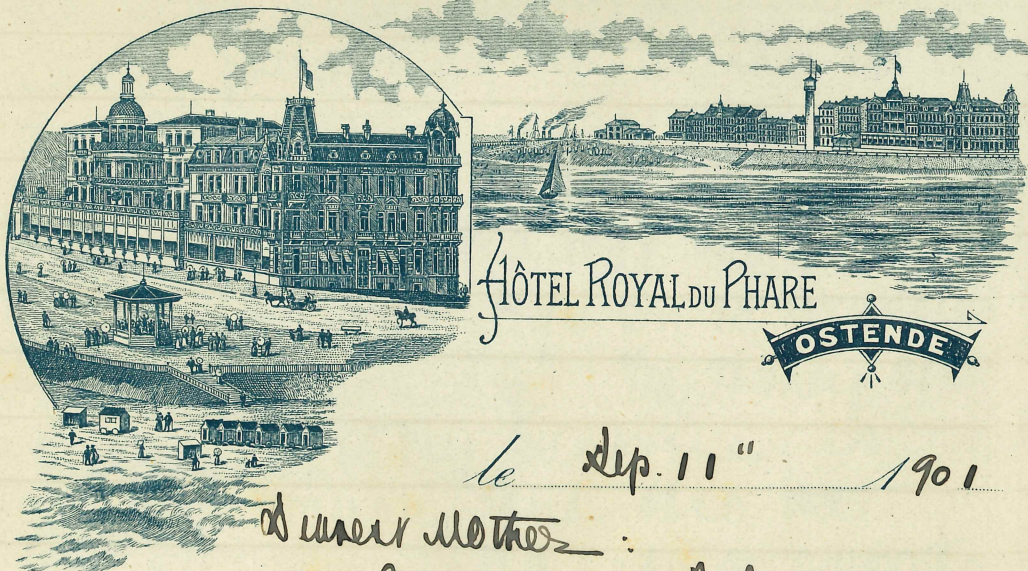 HÔTEL ROYAL DU PHARE
OSTENDE
le Sep. 11" 1901
Dearest Mother: